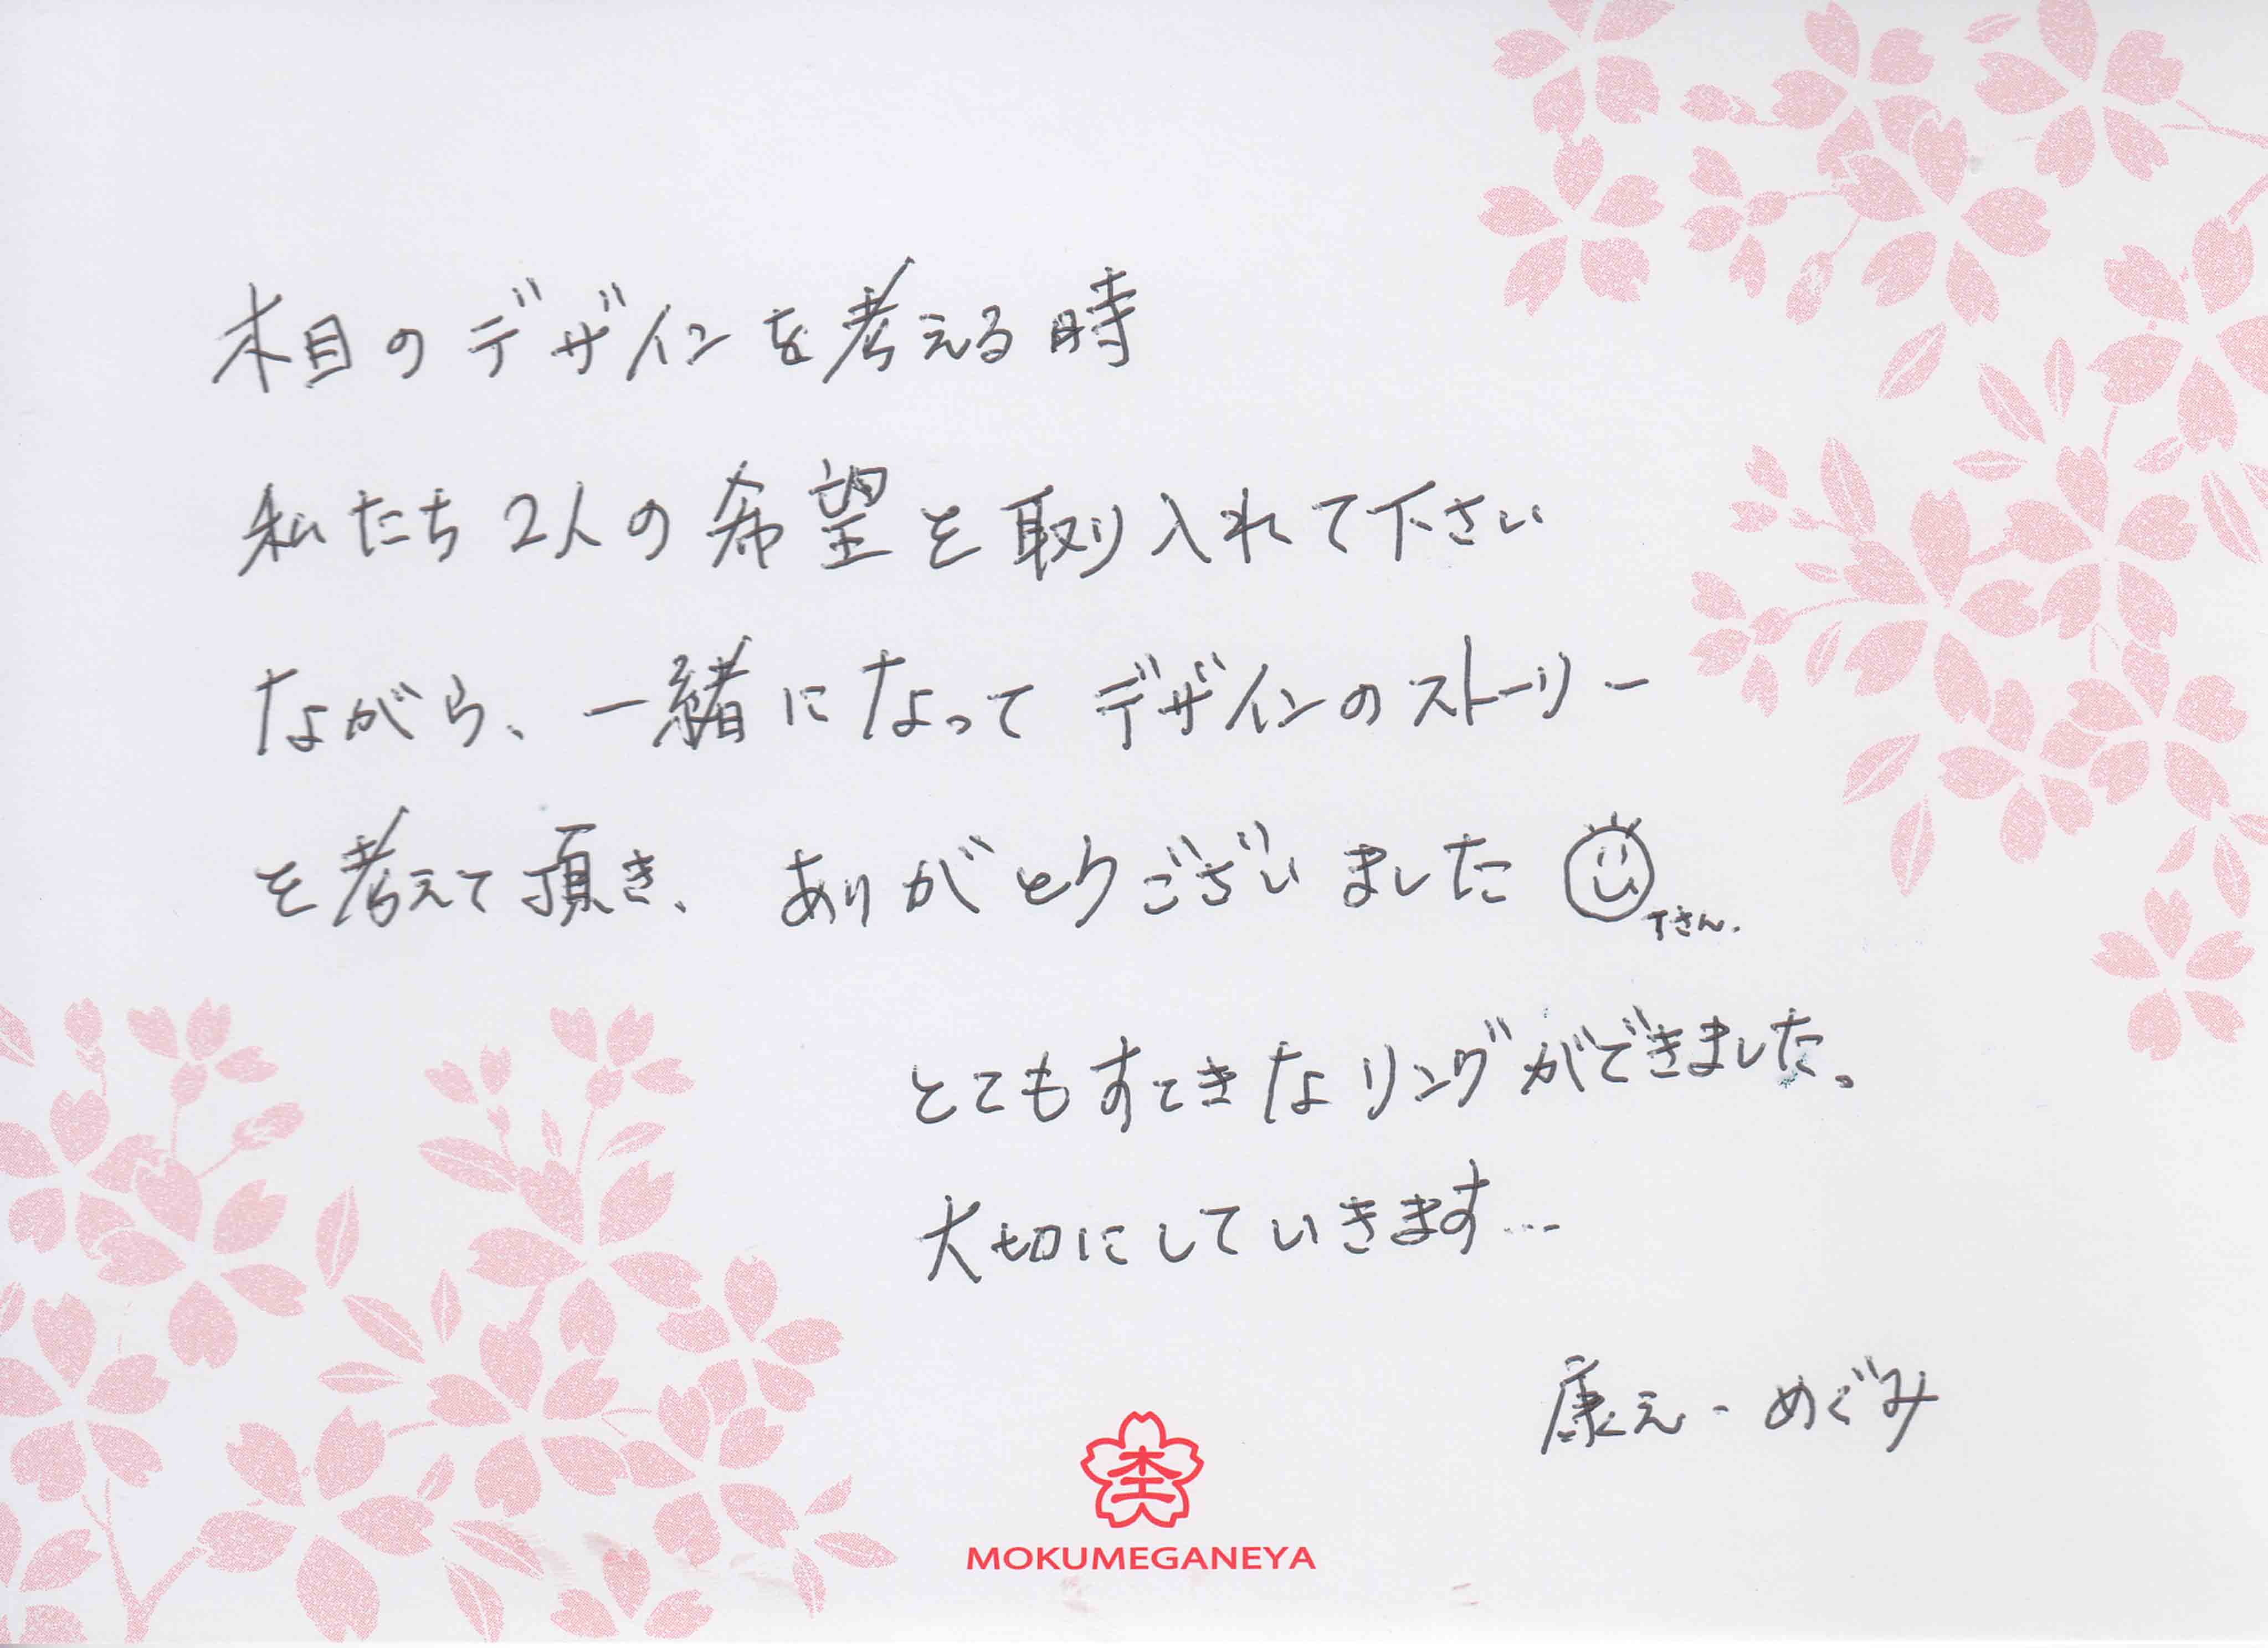 木目のデザインを考える時
私たち2人の希望を取り入れて下さい
ながら、一緒になってデザインのストーリー
を考えて頂き、ありがとうございました
Tさん.
とてもすてきなリングができました。
大切にしていきます…
康え - めぐみ
杢
MOKUMEGANEYA